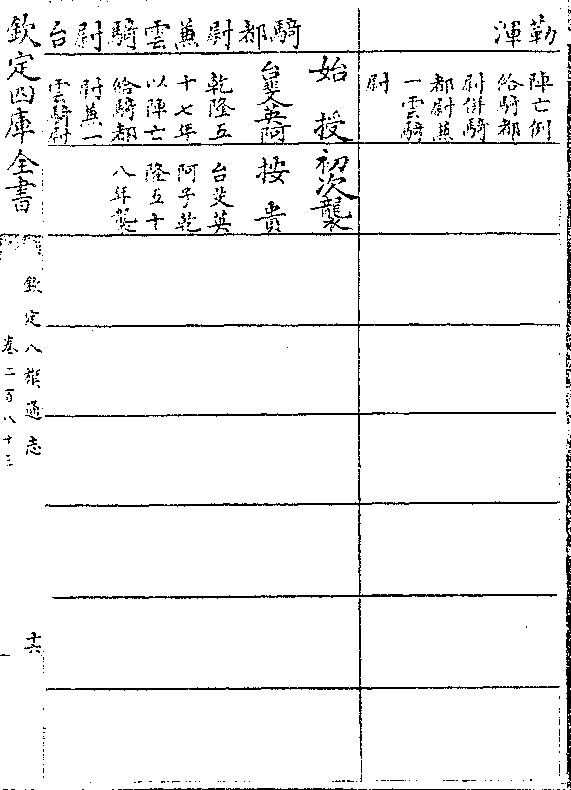 勒渾
陣亡例
給騎都
尉併騎
都尉兼
一雲騎
尉
騎都尉兼雲騎尉台
始授
台斐英阿
乾隆五
十七年
以陣亡
給騎都
尉兼一
雲騎尉
初次襲
按貴
台斐英
阿子乾
隆五十
八年襲
欽定四庫全書
欽定八旗通志
卷二百八十三
十六